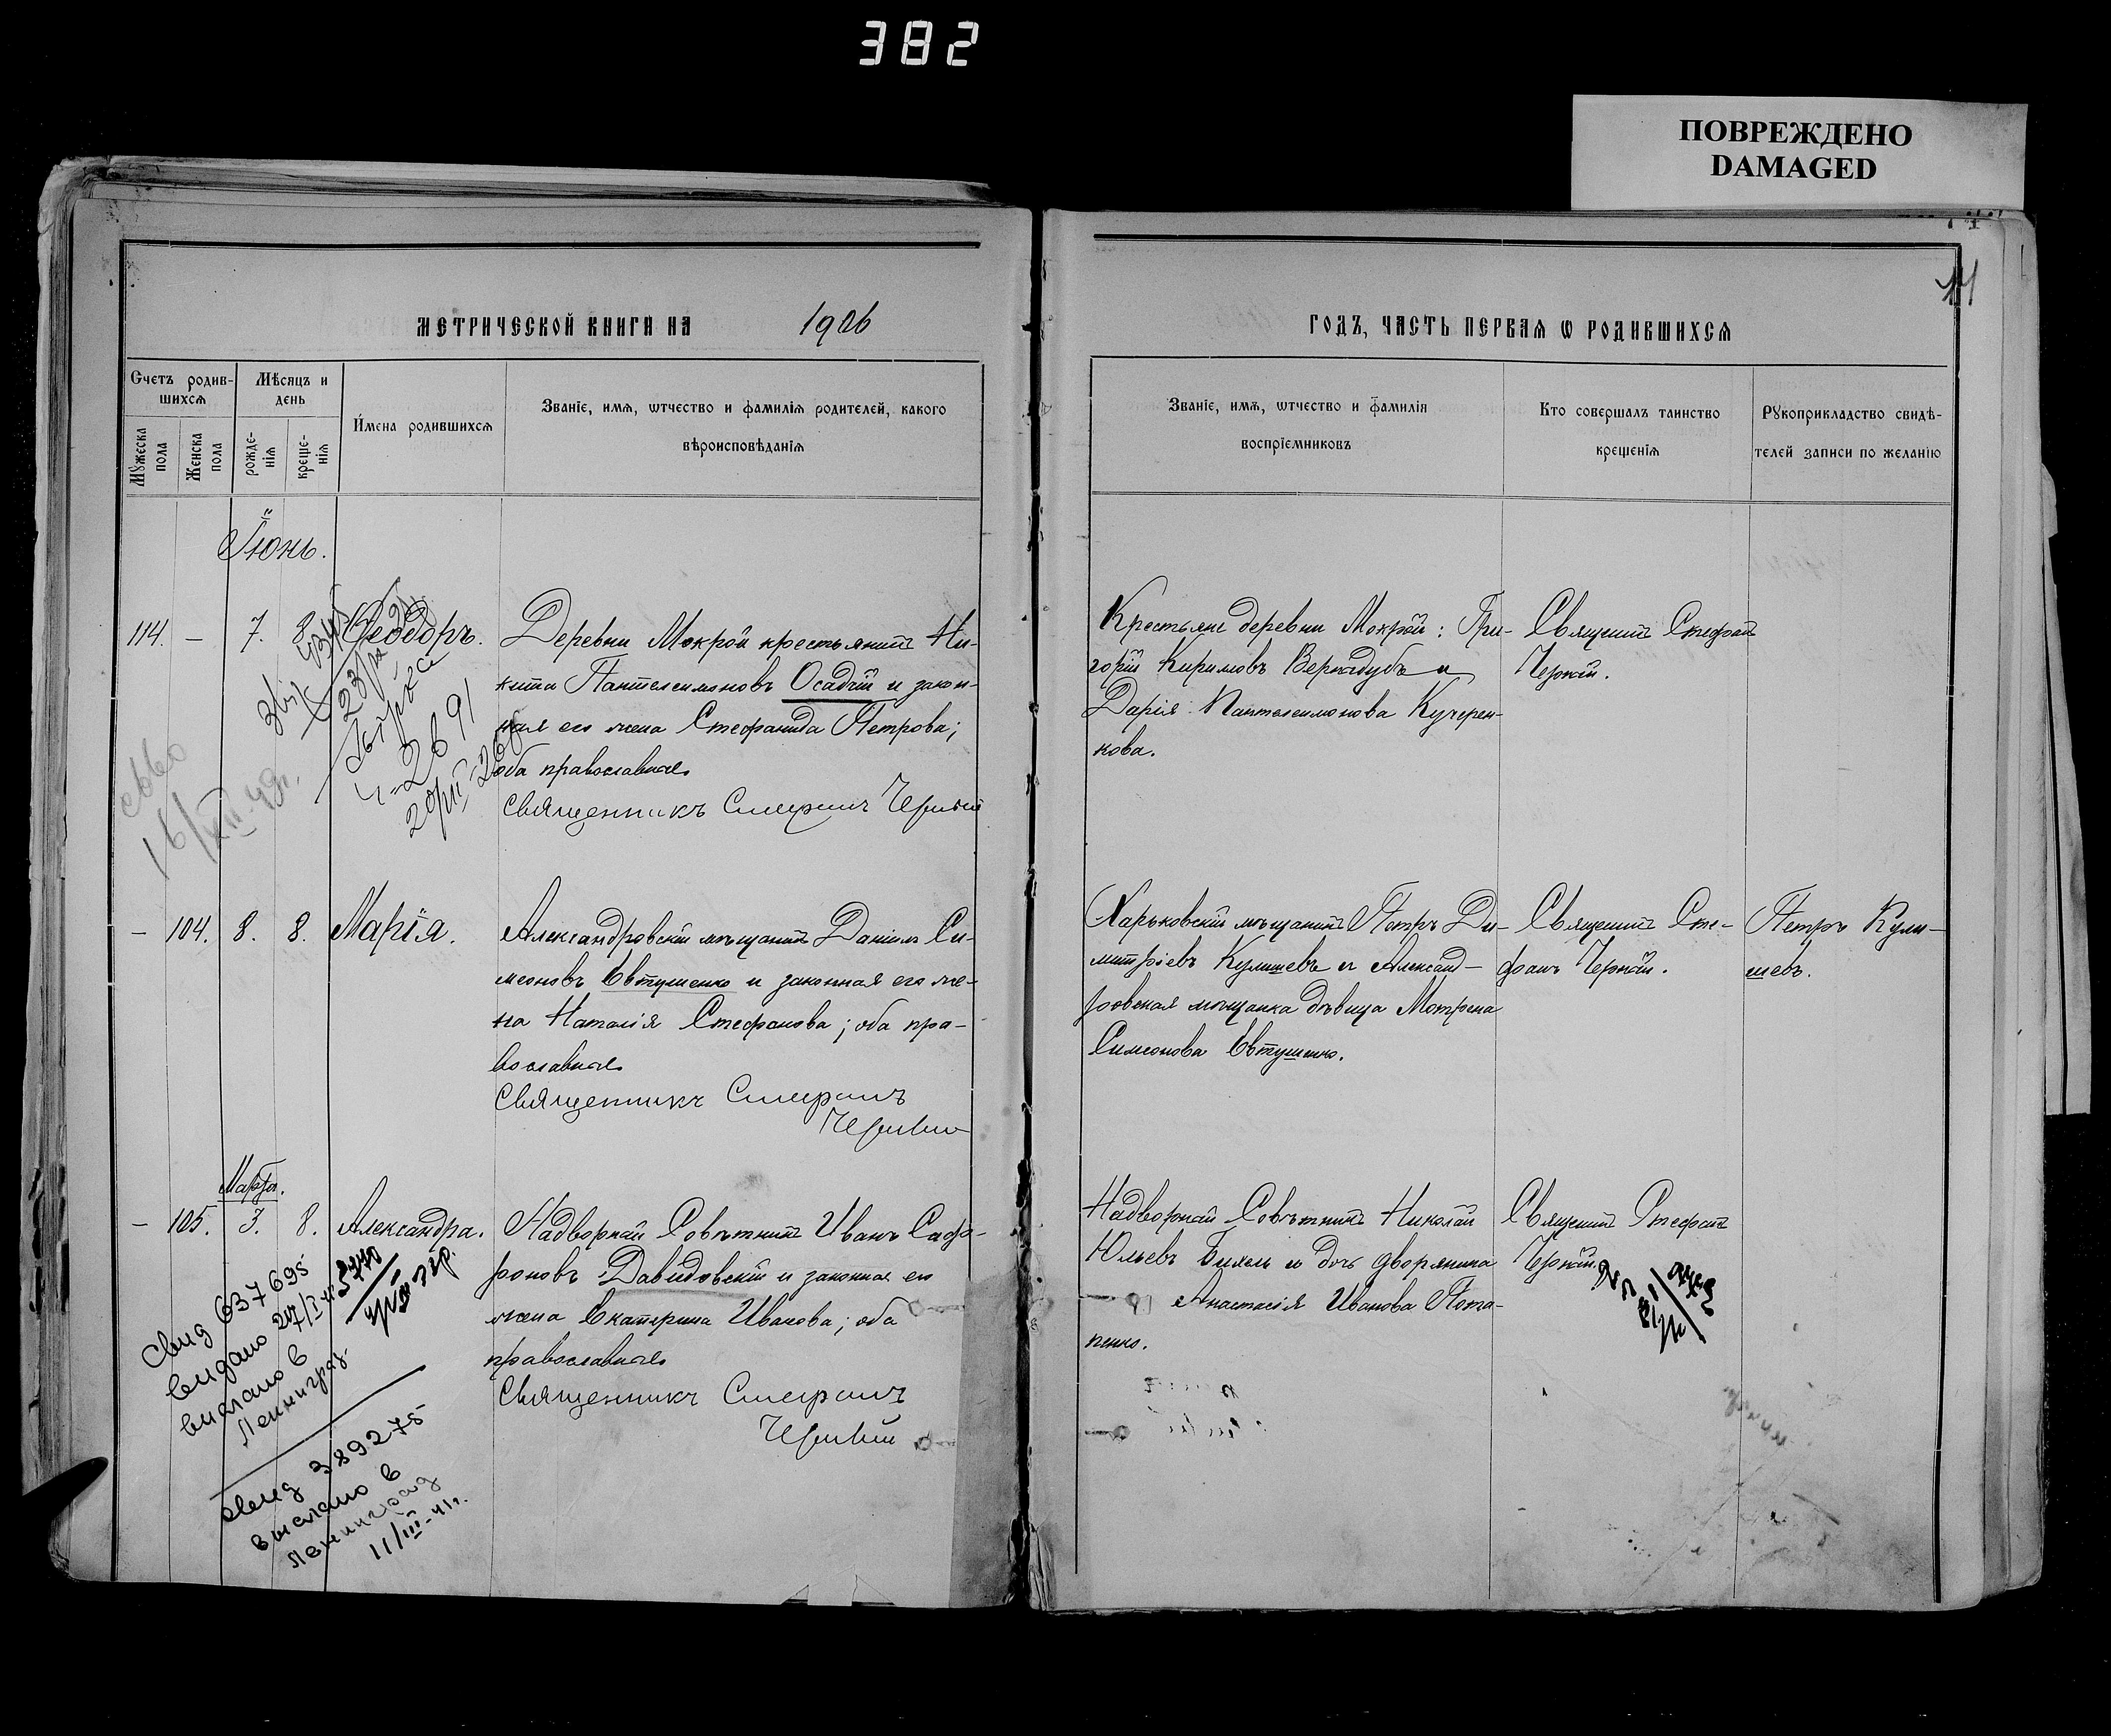 382
ПОВРЕЖДЕНО
DAMAGED
МЕТРИЧЕСКОЙ КНИГИ НА 1906
ГОДЪ, ЧАСТЬ ПЕРВАѦ Ѡ РОДИВШИХСѦ
Счетъ родив-
шихсѧ
Мѣсяцъ и
день
Мꙋжеска
пола
Женска
пола
рожде-
нїѧ
креще-
нїѧ
Имена родившихсѧ
Званїе, имѧ, ѡтчество и фамилїѧ родителей, какого
вѣроисповѣданїѧ
Званїе, имѧ, ѡтчество и фамилїѧ
воспрїемниковъ
Кто совершалъ таинство
крещенїѧ
Рꙋкоприкладство свидѣ-
телей записи по желанїю
Іюнь.
114. — 7. 8. Ѳеодоръ.
Деревни Мокрой крестьянинъ Ни-
кита Пантелеимоновъ Осадчій и закон-
ная его жена Стефанида Петрова;
оба православные
Священникъ Стефанъ Черный
Крестьяне деревни Мокрой: Гри-
горій Вернидубъ и
Дарія Пантелеимонова Кучерен-
кова.
Священникъ Стефанъ
Черный.
2691
16/XII-49г.
— 104. 8. 8. Марія.
Александровскій мѣщанинъ Даніилъ Си-
меоновъ Евтушенко и законная его же-
на Наталія Стефанова; оба пра-
вославные
Священникъ Стефанъ
Черный
Харьковскій мѣщанинъ Петръ Ди-
митріевъ Кулишевъ и Александ-
ровская мѣщанка дѣвица Мотрона
Симеонова Евтушенко.
Священникъ Сте-
фанъ Черный.
Петръ Кули-
шевъ.
Марта.
— 105. 3. 8. Александра.
Надворный Совѣтникъ Иванъ Сафо-
роновъ Давидовскій и законная его
жена Екатерина Иванова; оба
православные
Священникъ Стефанъ
Черный
Надворный Совѣтникъ Николай
Юльевъ и дочь дворянина
Анастасія Иванова Пота-
пенко.
Священникъ Стефанъ
Черный.
Свид 637695
видано
вислано в
Ленинград.
свид 389275
выслано в
Ленинград
11/III-41г.